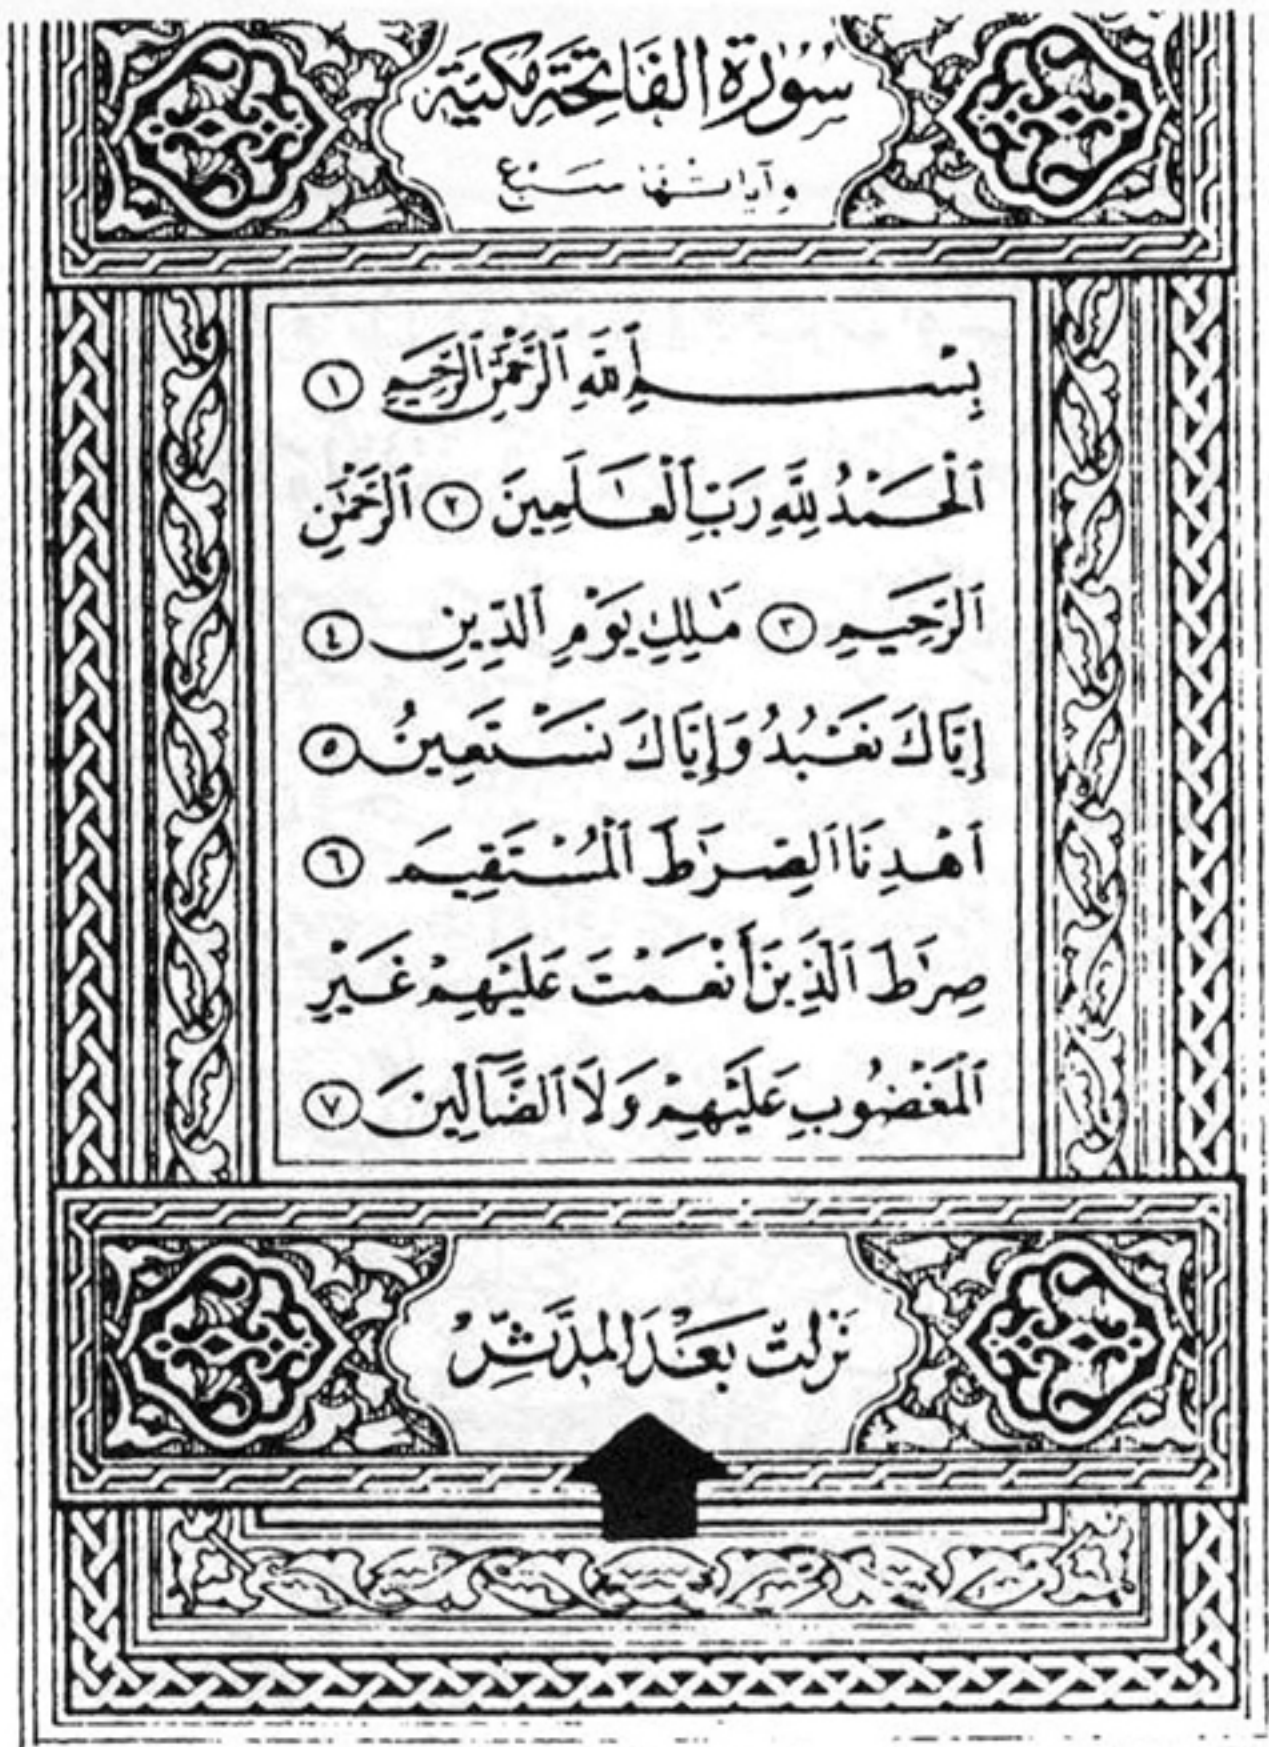 سُورَةُ الفَاتِحَةِ مَكِّيَّة
وآياتها سَبْع
بِسْمِ ٱللَّهِ ٱلرَّحْمَٰنِ ٱلرَّحِيمِ ١
ٱلْحَمْدُ لِلَّهِ رَبِّ ٱلْعَٰلَمِينَ ٢ ٱلرَّحْمَٰنِ
ٱلرَّحِيمِ ٣ مَٰلِكِ يَوْمِ ٱلدِّينِ ٤
إِيَّاكَ نَعْبُدُ وَإِيَّاكَ نَسْتَعِينُ ٥
ٱهْدِنَا ٱلصِّرَٰطَ ٱلْمُسْتَقِيمَ ٦
صِرَٰطَ ٱلَّذِينَ أَنْعَمْتَ عَلَيْهِمْ غَيْرِ
ٱلْمَغْضُوبِ عَلَيْهِمْ وَلَا ٱلضَّآلِّينَ ٧
نَزَلَتْ بَعْدَ المدَّثِّرْ